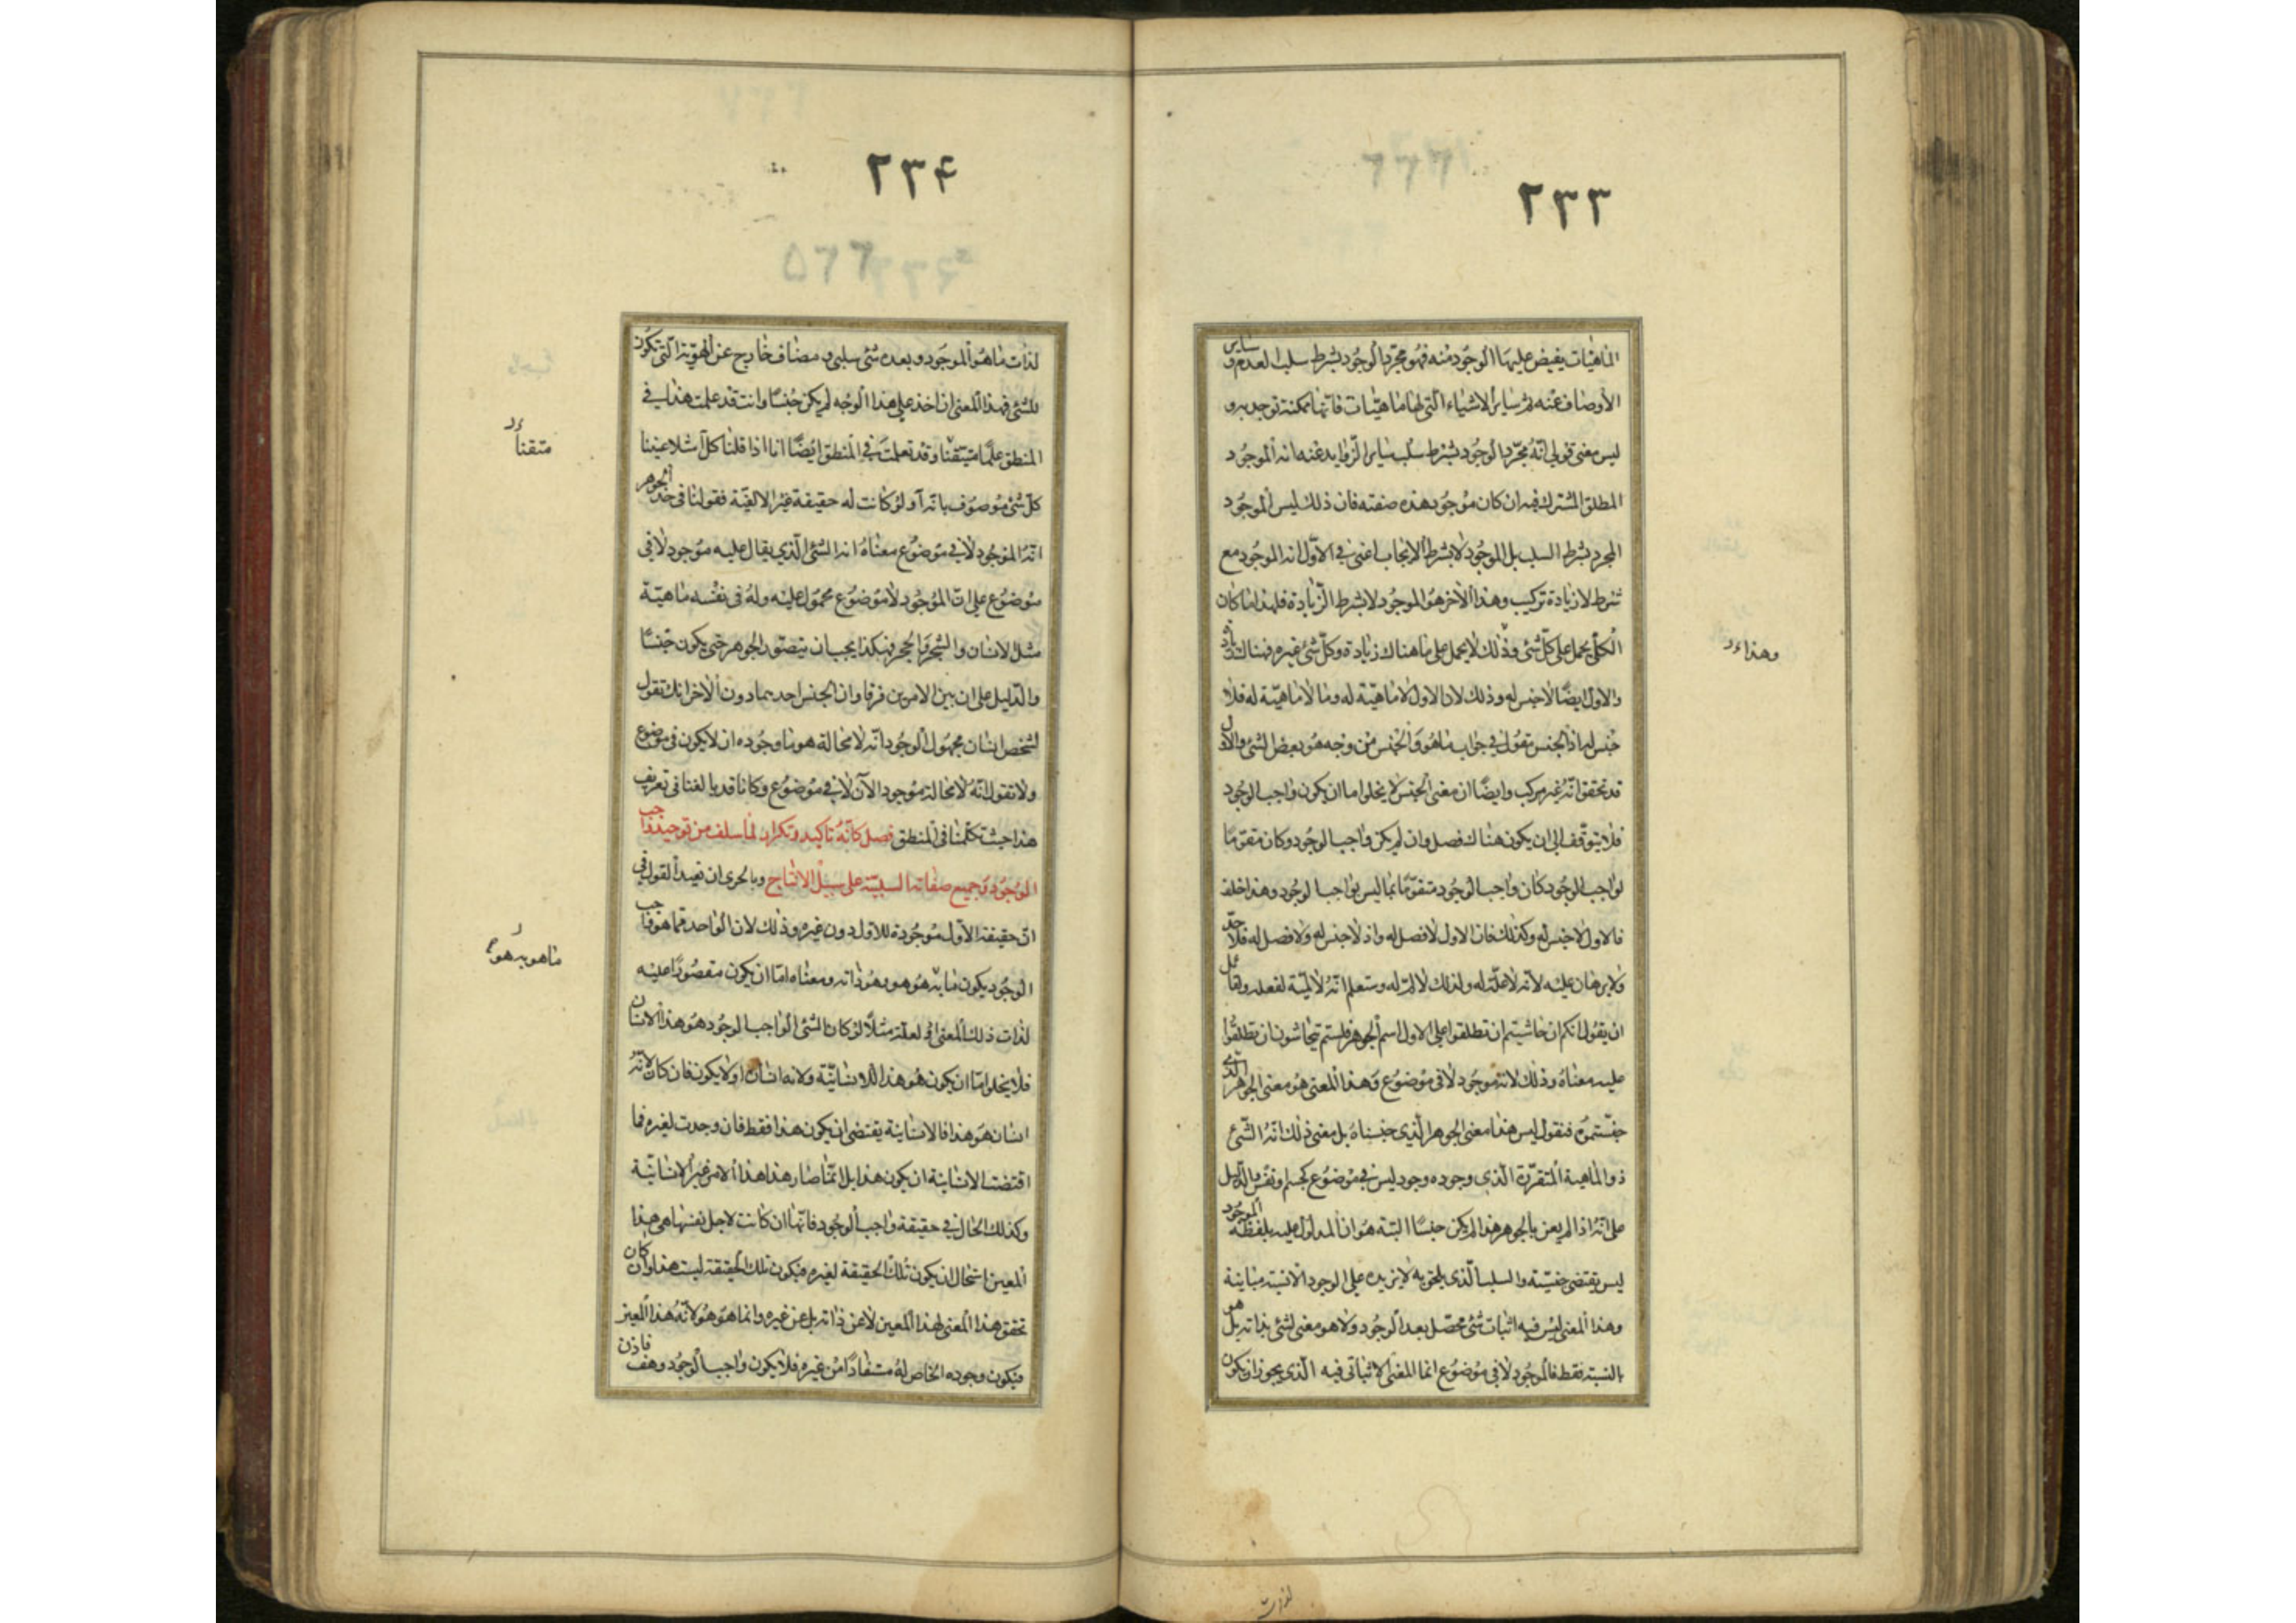 ٢٣٣
الماهيات يفيض عليها الوجود منه فهو مجرد الوجود بشرط سلب العدم و سایر
الأوصاف عنه ثم سایر الاشياء التى لها ماهيّات فانها ممكنة توجد به و
ليس معنى قولى انّه مجرّد الوجود بشرط سلب سایر الزّوايد عنه انه الموجود
المطلق المشترك فيه ان كان موجود هذه صفته فان ذلك ليس الموجود
المجرد بشرط السلب بل الموجود لا بشرط الايجاب اعنى فى الاوّل انه الموجود مع
شرط لا زيادة تركيب وهذا الاخر هو الموجود لا بشرط الزّيادة فلهذا ما كان
الكلّى يحمل على كلّ شئ وذلك لا يحمل على ما هناك زيادة وكلّ شئ غيره فهناك زيادة
وهذا
والاول ايضًا لا جنس له وذلك لان الاول لا ماهيّة له وما لا ماهيّة له فلا
جنس له اذ الجنس مقول فى جواب ما هو والجنس من وجه هو بعض الشئ والاول
قد تحقق انّه غير مركب وايضًا ان معنى الجنس لا يخلو اما ان يكون واجب الوجود
فلا يتوقّف الى ان يكون هناك فصل وان لم يكن واجب الوجود وكان مقوّمًا
لواجب الوجود كان واجب الوجود متقوّمًا بما ليس بواجب الوجود وهذا خلف
فالاول لا جنس له وكذلك فان الاول لا فصل له واذ لا جنس له ولا فصل له فلا حدّ
ولا برهان عليه لانّه لا علّة له ولذلك لا لمّ له وستعلم انّه لا لميّة لفعله ولقائل
ان يقول انكم ان تحاشيتم ان تطلقوا على الاول اسم الجوهر فلستم تتحاشون ان تطلقوا
عليه معناه وذلك لانه موجود لا فى موضوع وهذا المعنى هو معنى الجوهر الّذى
جنّستموه فنقول ليس هذا معنى الجوهر الّذى جنسناه بل معنى ذلك انّه الشّئ
ذو الماهية المتقرّرة الّذى وجوده وجود ليس فى موضوع كجسم ونفس والدّليل
على انّه اذا لم يعن بالجوهر هذا لم يكن جنسًا البتة هو ان المدلول عليه بلفظة الموجود
ليس يقتضى جنسيّته والسلب الّذى يلحق به لا يزيده على الوجود الا نسبة مباينة
وهذا المعنى ليس فيه اثبات شئ محصّل بعد الوجود ولا هو معنى لشئ بذاته بل هو
بالنسبة فقط فالموجود لا فى موضوع انما المعنى الاثباتى فيه الّذى يجوز ان يكون
لذات
٢٣٤
لذات ما هو الموجود و بعده شئ سلبى و مضاف خارج عن الهويّة الّتى تكون
للشئ فهذا المعنى ان اخذ على هذا الوجه لم يكن جنسًا وانت قد علمت هذا فى
المنطق علمًا متيقنا وقد تعلمت فى المنطق ايضًا انا اذا قلنا كل آ مثلا عنينا
متقنا
كلّ شئ موصوف بانه آ ولو كانت له حقيقة غير الالفيّة فقولنا فى حد الجوهر
انّه الموجود لا فى موضوع معناه انه الشئ الّذى يقال عليه موجود لا فى
موضوع على ان الموجود لا موضوع محمول عليه وله فى نفسه ماهيّة
مثل الانسان والشجر والحجر فهكذا يجب ان يتصوّر الجوهر حتى يكون جنسًا
والدّليل على ان بين الامرين فرقا وان الجنس احدهما دون الاخر انك تقول
لشخص انسان مجهول الوجود انّه لا محالة هو ما وجوده ان لا يكون فى موضوع
ولا تقول انّه لا محالة موجود الآن لا فى موضوع وكانا قد بالغنا فى تعريف
هذا حيث تكلّمنا فى المنطق فصل كانّه تاكيد وتكرار لما سلف من توحيد واجب
الوجود وجميع صفاته السلبيّة على سبيل الانتاج وبالحرى ان نعيد القول فى
ان حقيقة الأوّل موجودة للاول دون غيره وذلك لان الواحد فما هو واجب
الوجود يكون ما به هو هو وهو ذاته ومعناه امّا ان يكون مقصورًا عليه
ما هو به هو
لذات ذلك المعنى او لعلة مثلًا لو كان الشئ الواجب الوجود هو هذا الانسان
فلا يخلو امّا ان يكون هو هذا للانسانيّة ولانه انسان او لا يكون فان كان لانّه
انسان هو هذا فالانسانية يقتضى ان يكون هذا فقط فان وجدت لغيره فما
اقتضت الانسانية ان يكون هذا بل انّما صار هذا هذا لامر غير الانسانيّة
وكذلك الحال فى حقيقة واجب الوجود فانّها ان كانت لاجل نفسها هى هذا
المعين استحال ان يكون تلك الحقيقة لغيره فيكون تلك الحقيقة ليست هذا وان كان
تحقق هذا المعنى لهذا المعين لا عن ذاته بل عن غيره وانما هو هو لانّه هذا المعين
فيكون وجوده الخاص له مستفادًا من غيره فلا يكون واجب الوجود وهف فاذن